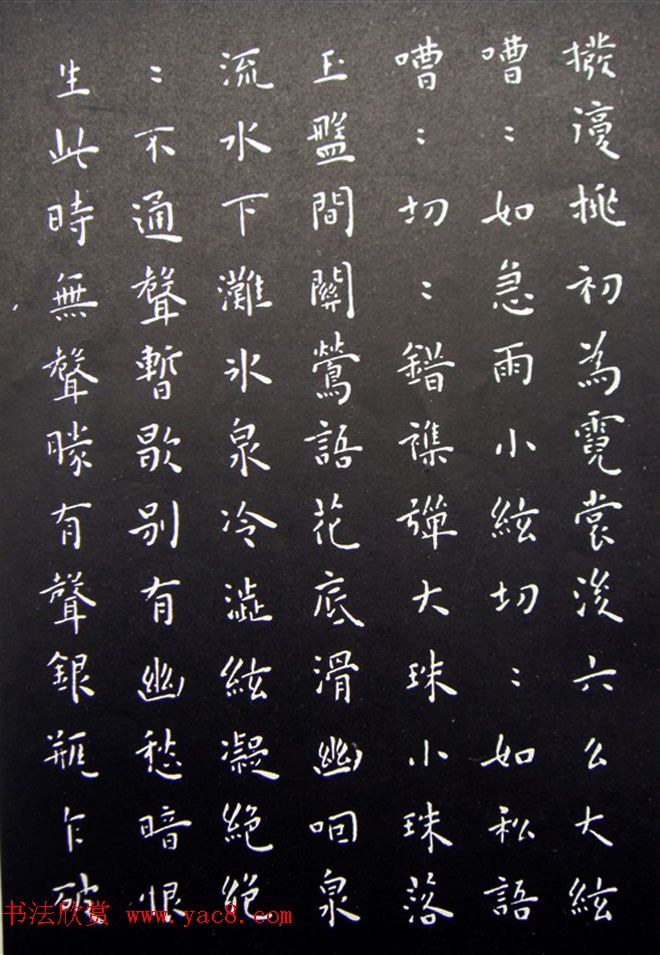 撥復挑初為霓裳後六么大絃
嘈：如急雨小絃切：如私語
嘈：切：錯雜彈大珠小珠落
玉盤間關鶯語花底滑幽咽泉
流水下灘氷泉冷澁絃凝絕絕
：不通聲暫歇別有幽愁暗恨
生此時無聲勝有聲銀瓶乍破
书法欣赏 www.yac8.com